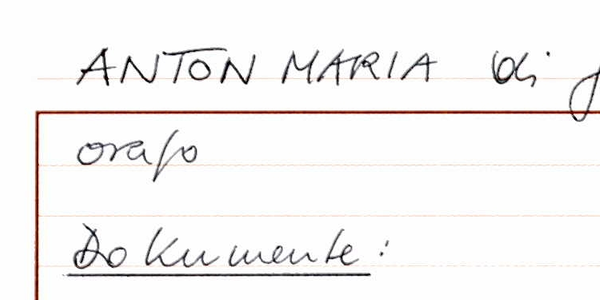 ANTON MARIA di
orafo
Dokumente: